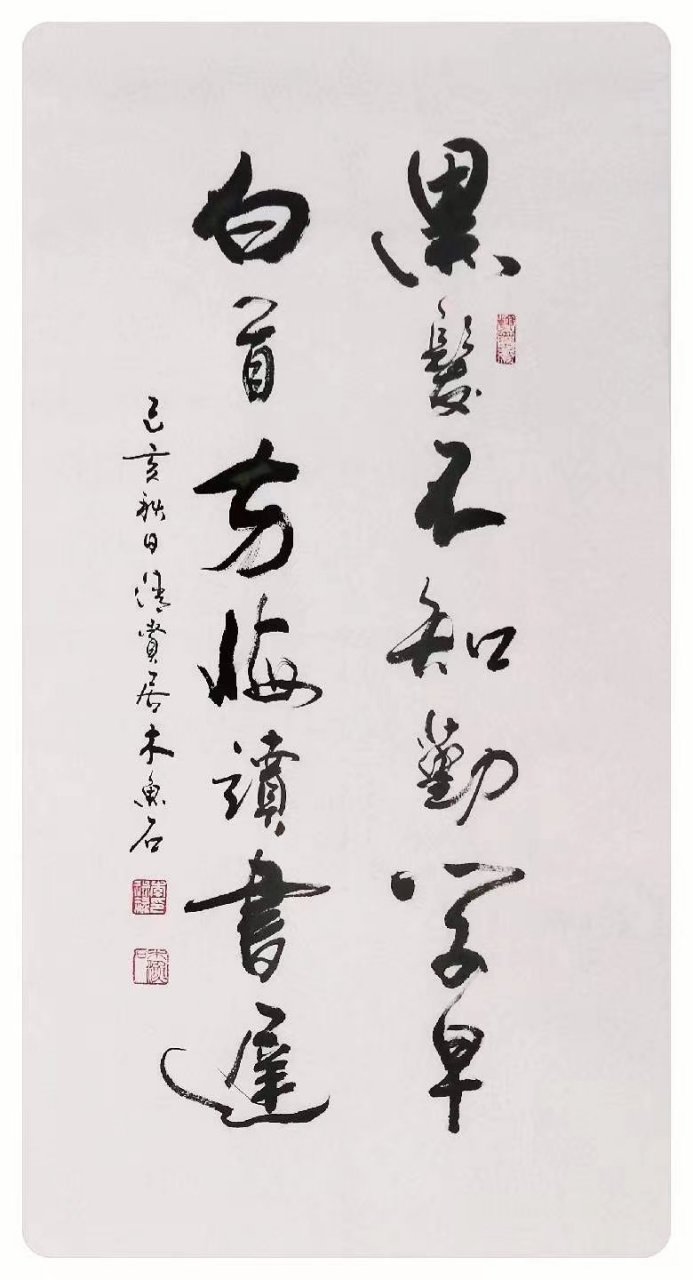 黑髮不知勤學早
白首方悔讀書遲
己亥秋日清賞居木魚石